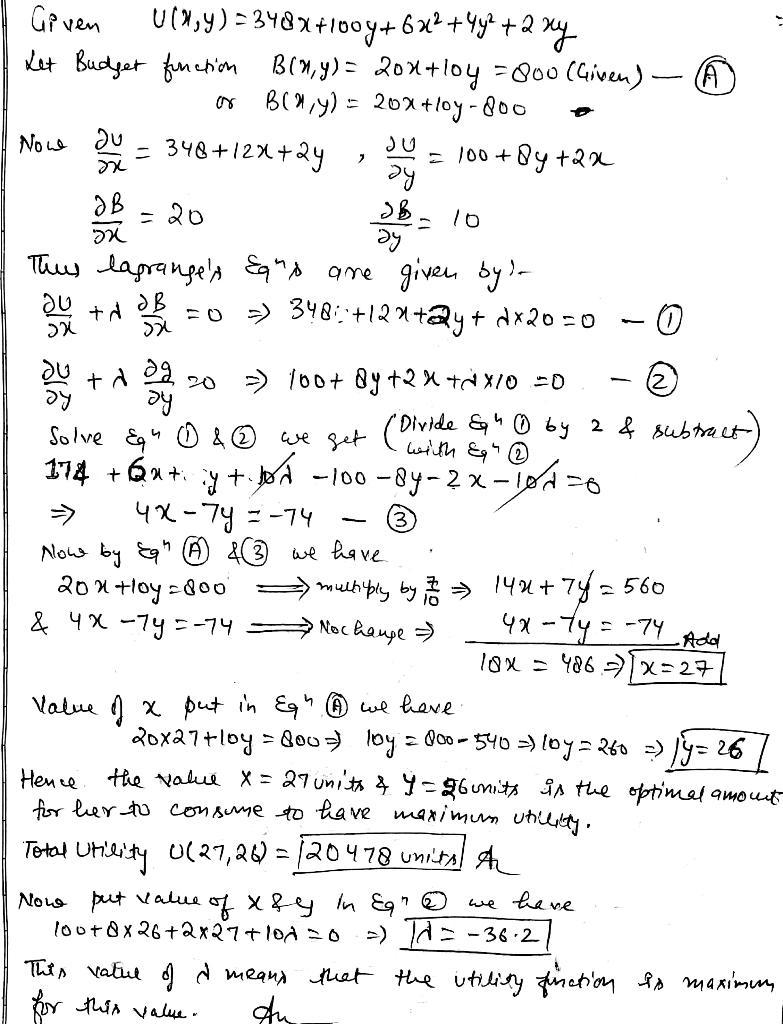 Given U(x,y) = 348x+100y+6x²+4y²+2xy
Let Budget function B(x,y) = 20x+10y = 800 (Given) — Ⓐ
or B(x,y) = 20x+10y-800
Now ∂U/∂x = 348+12x+2y , ∂U/∂y = 100+8y+2x
∂B/∂x = 20 ∂B/∂y = 10
Thus lagrange's Eqⁿs are given by:-
∂U/∂x + λ ∂B/∂x = 0 ⇒ 348+12x+2y+ λ×20=0 — ①
∂U/∂y + λ ∂g/∂y =0 ⇒ 100+8y+2x+λ×10 =0 — ②
Solve Eqⁿ ① & ② we get (Divide Eqⁿ ① by 2 & subtract with Eqⁿ ②)
174 + 6x + y + 10λ - 100 - 8y - 2x - 10λ = 0
⇒ 4x-7y = -74 — ③
Now by Eqⁿ Ⓐ & ③ we have
20x+10y=800 ⟹ multiply by 7/10 ⇒ 14x+7y = 560
& 4x-7y=-74 ⟹ No change ⇒ 4x-7y = -74 Add
18x = 486 ⇒ x=27
Value of x put in Eqⁿ Ⓐ we have
20×27+10y=800 ⇒ 10y = 800-540 ⇒ 10y=260 ⇒ y=26
Hence the value x = 27 units & y = 26 units is the optimal amount
for her to consume to have maximum utility.
Total Utility U(27,26) = 20478 units
Now put value of x & y in Eqⁿ ② we have
100+8×26+2×27+10λ=0 ⇒ λ = -36.2
This value of λ means that the utility function is maximum
for this value.